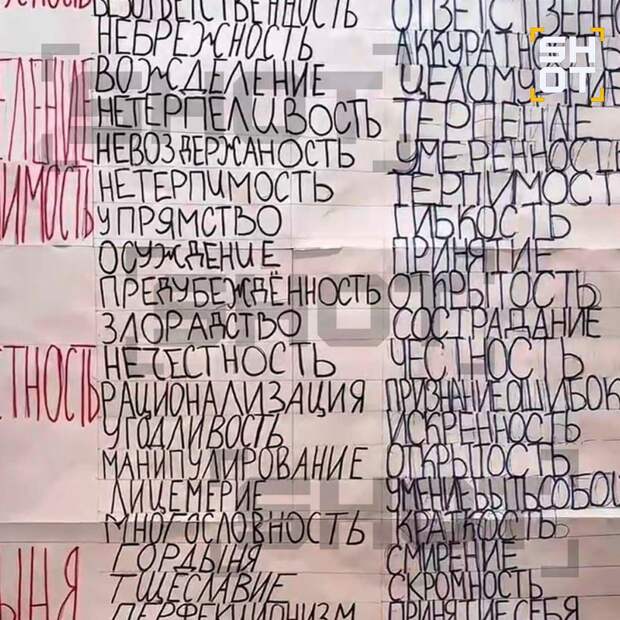 БЕЗОТВЕТСТВЕННОСТЬ ОТВЕТСТВЕННО
НЕБРЕЖНОСТЬ АККУРАТНОСТЬ
SHOT
ВОЖДЕЛЕНИЕ ЦЕЛОМУДРИЕ
НЕТЕРПЕЛИВОСТЬ ТЕРПЕНИЕ
ЕЛЕНИЕ НЕВОЗДЕРЖАНОСТЬ УМЕРЕННОСТЬ
НЕТЕРПИМОСТЬ ТЕРПИМОСТЬ
ИМОСТЬ УПРЯМСТВО ГИБКОСТЬ
ОСУЖДЕНИЕ ПРИНЯТИЕ
ПРЕДУБЕЖДЁННОСТЬ ОТКРЫТОСТЬ
ЗЛОРАДСТВО СОСТРАДАНИЕ
НЕЧЕСТНОСТЬ ЧЕСТНОСТЬ
ТНОСТЬ РАЦИОНАЛИЗАЦИЯ ПРИЗНАНИЕ ОШИБОК
УГОДЛИВОСТЬ ИСКРЕННОСТЬ
МАНИПУЛИРОВАНИЕ ОТКРЫТОСТЬ
ЛИЦЕМЕРИЕ УМЕНИЕ БЫТЬ СОБОЙ
МНОГОСЛОВНОСТЬ КРАТКОСТЬ
ГОРДЫНЯ СМИРЕНИЕ
ЫНЯ ТЩЕСЛАВИЕ СКРОМНОСТЬ
ПЕРФЕКЦИОНИЗМ ПРИНЯТИЕ СЕБЯ